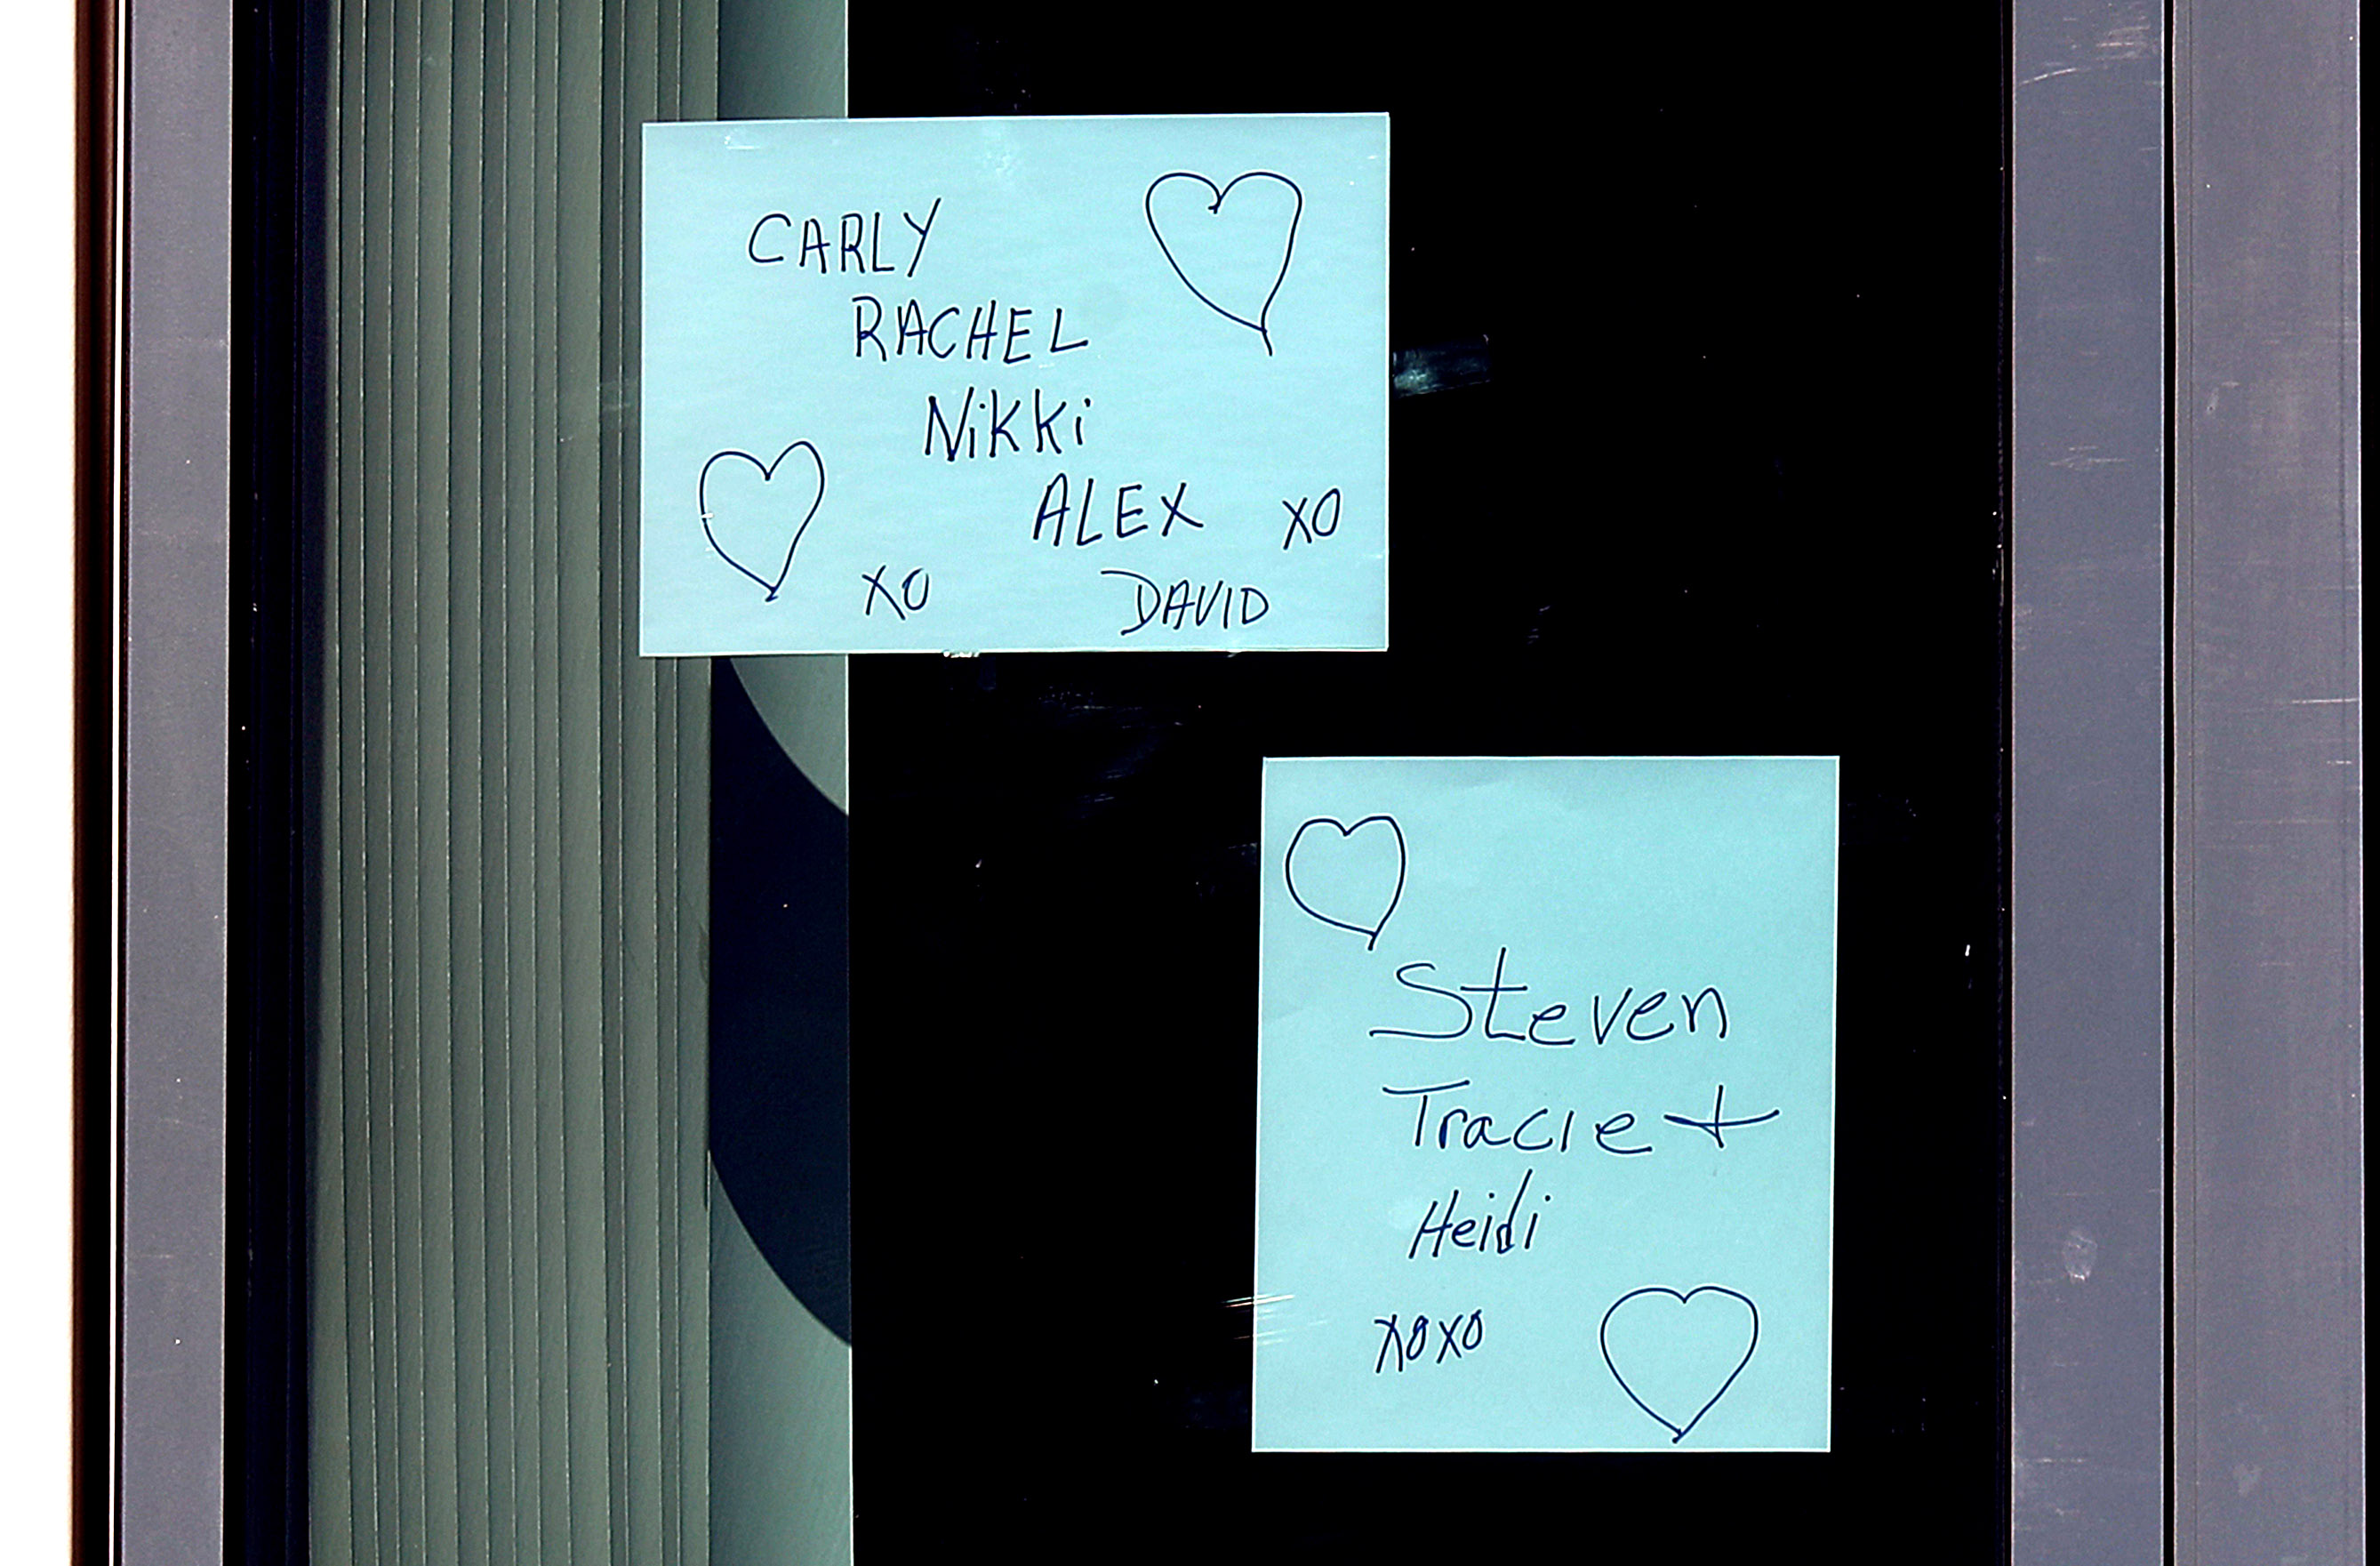 CARLY
RACHEL
Nikki
ALEX XO
XO DAVID
Steven
Tracie +
Heidi
XOXO